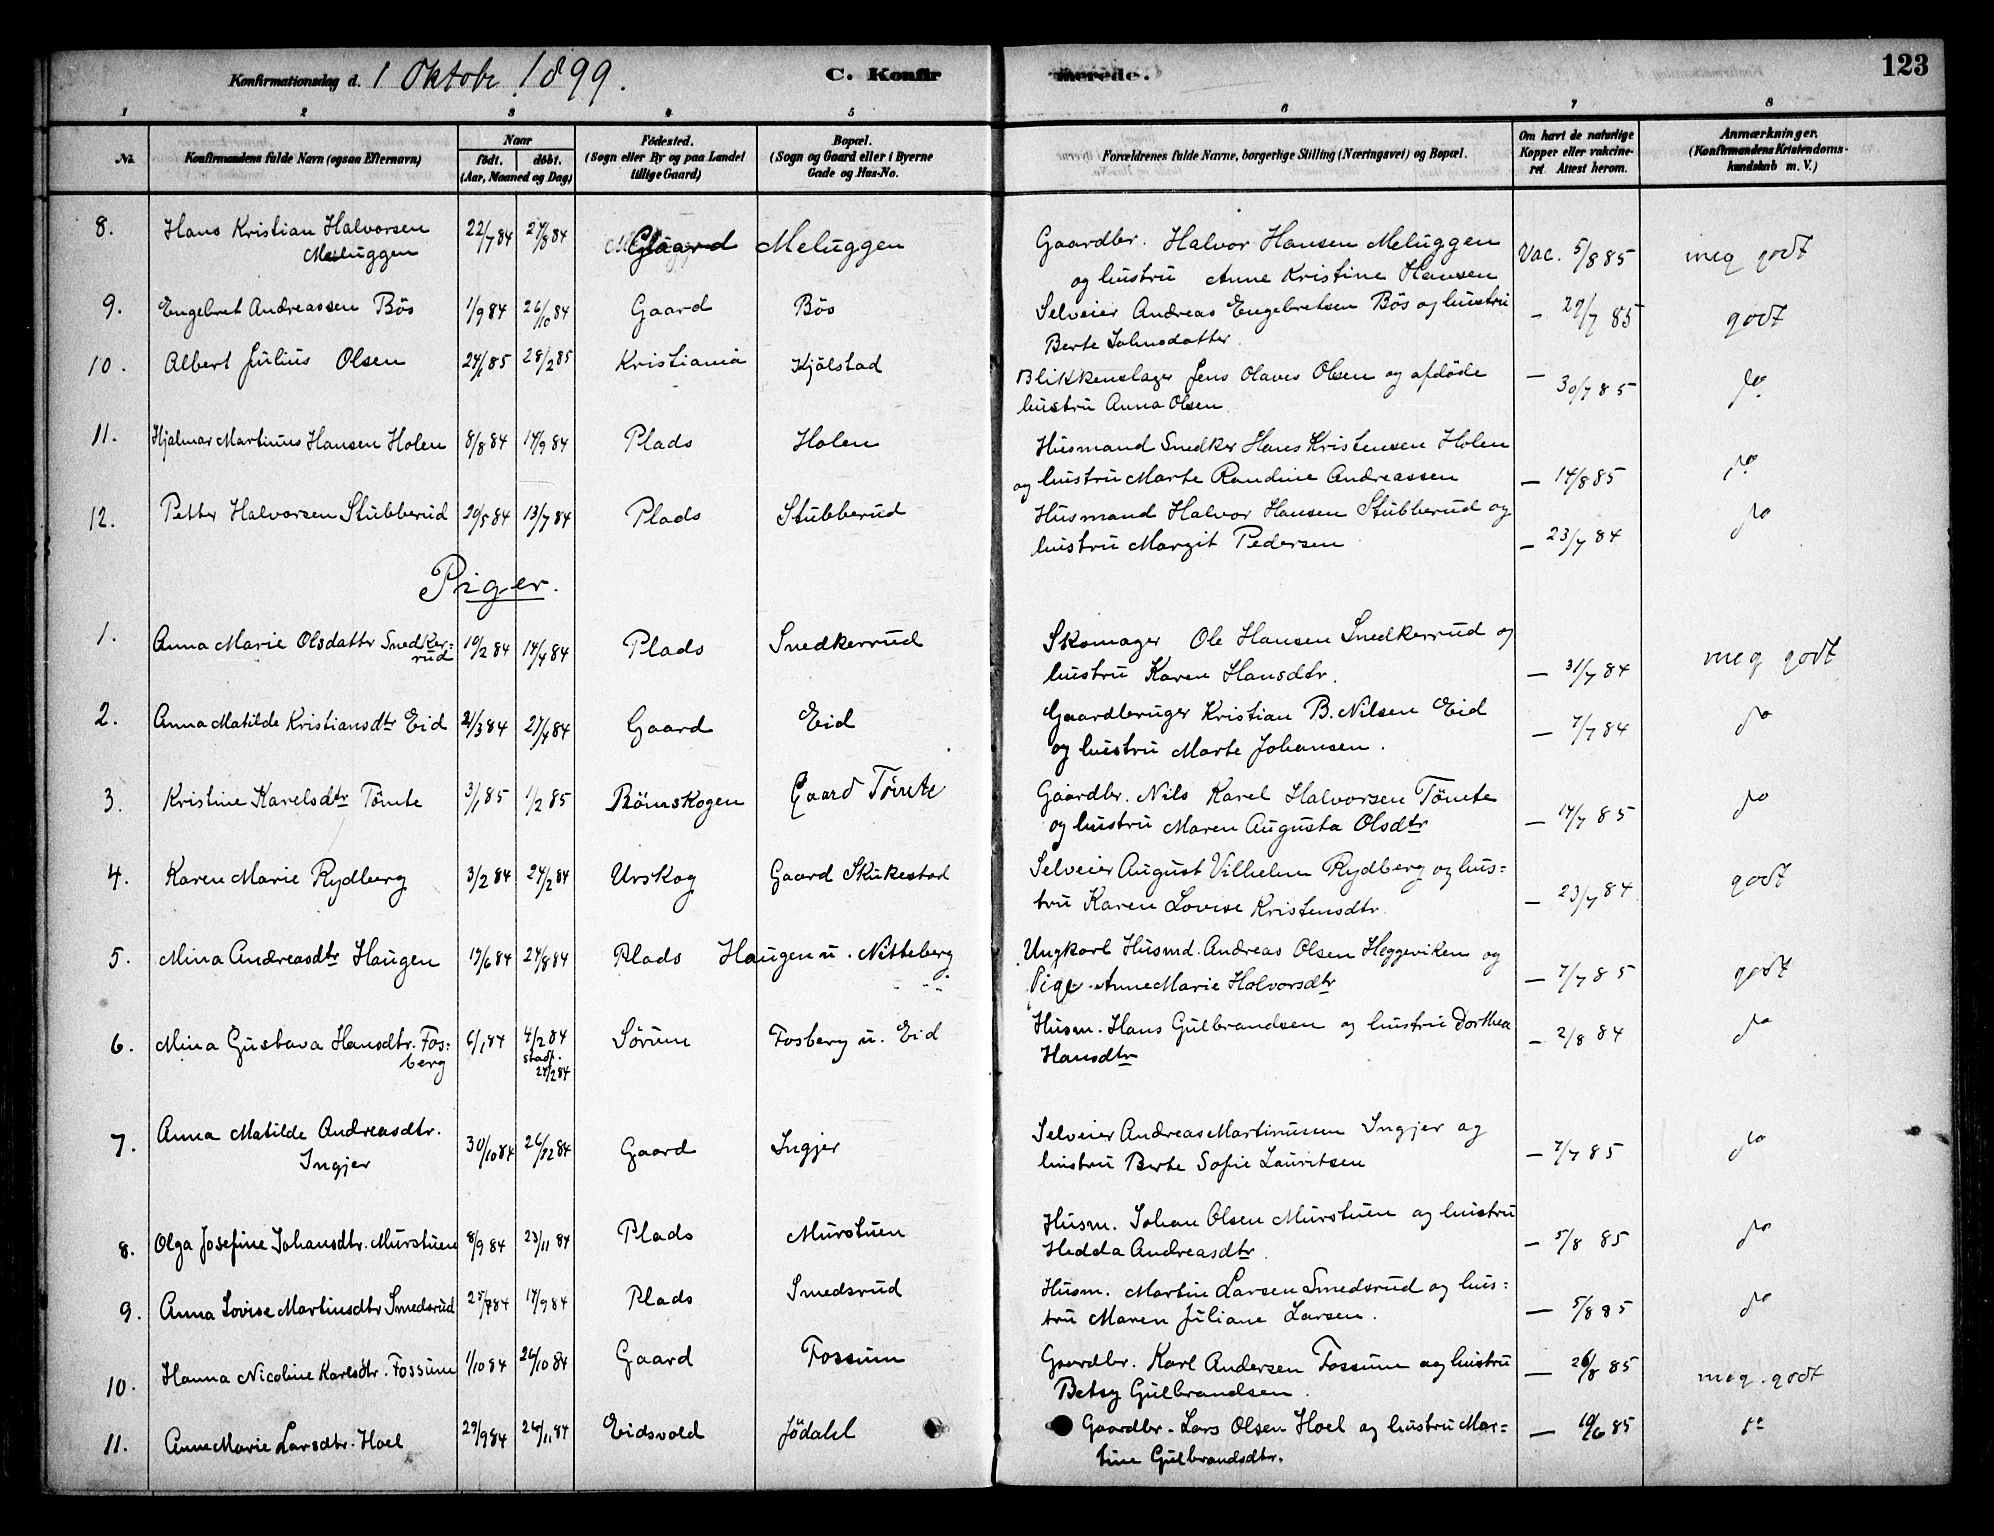 Konfirmationsdag d. 1 Oktobr. 1899.
C. Konfirmerede.
123
1 2 3 4 5 6 7 8
No.
Konfirmandens fulde Navn (ogsaa Efternavn)
Naar
født. døbt.
(Aar, Maaned og Dag)
Fødested.
(Sogn eller By og paa Landet
tillige Gaard)
Bopæl.
(Sogn og Gaard eller i Byerne
Gade og Hus-No.
Forældrenes fulde Navne, borgerlige Stilling (Næringsvei) og Bopæl.
Om havt de naturlige
Kopper eller vakcine-
ret. Attest herom.
Anmærkninger.
(Konfirmandens Kristendoms-
kundskab m. V.)
8. Hans Kristian Halvorsen 22/7 84 27/8 84 Gaard Meluggen Gaardbr. Halvor Hansen Meluggen Vac. 5/8 85 meg godt
Meluggen og hustru Anne Kristine Hansen
9. Engebret Andreassen Bös 1/9 84 26/10 84 Gaard Bös Selveier Andreas Engebretsen Bös og hustru – 29/7 85 godt
Berte Johnsdatter.
10. Albert Julius Olsen 28/2 85 Kristiania Kjölstad Blikkenslager Jens Olaves Olsen og afdöde – 30/7 85 do
hustru Anna Olsen
11. Hjalmar Martinus Hansen Holen 8/8 84 14/9 84 Plads Holen Husmand Snedker Hans Kristensen Holen
og hustru Marte Randine Andreassen – 14/8 85 do
12. Petter Halvorsen Stubberud 20/5 84 13/7 84 Plads Stubberud Husmand Halvor Hansen Stubberud og
hustru Margit Pedersen – 23/7 84 do
Piger.
1. Anna Marie Olsdattr Snedker- 10/2 84 14/4 84 Plads Snedkerrud Skomager Ole Hansen Snedkerrud og
rud hustru Karen Hansdtr. – 31/7 84 meg godt
2. Anna Matilde Kristiansdtr Eid 21/3 84 27/4 84 Gaard Eid Gaardbruger Kristian B. Nilsen Eid
og hustru Marte Johansen. – 7/7 84 do
3. Kristine Karelsdtr Tömte 3/1 85 1/2 85 Römskogen Gaard Tömte Gaardbr. Nils Karel Halvorsen Tömte
og hustru Maren Augusta Olsdtr – 14/7 85 do
4. Karen Marie Rydberg 3/2 84 24/2 84 Urskog Gaard Skukestad Selveier August Vilhelm Rydberg og hus-
tru Karen Lovise Kristensdtr. – 23/7 84 godt
5. Mina Andreasdtr Haugen 17/6 84 24/8 84 Plads Haugen u. Nitteberg Ungkarl Husmd. Andreas Olsen Heggeviken og
Pige Anne Marie Halvorsdtr – 7/7 85 godt
6. Mina Gustava Hansdtr. Fos- 6/1 84 4/2 84 Sörum Fosberg u. Eid Husm. Hans Gulbrandsen og hustru Dorthea – 2/8 84 do
berg stadf. 24/2 84 Hansdtr
7. Anna Matilde Andreasdtr. 30/10 84 26/12 84 Gaard Ingjer Selveier Andreas Martinusen Ingjer og
Ingjer hustru Berte Sofie Lauritsen – 7/7 85 do
8. Olga Josefine Johansdtr. Murstuen 8/9 84 23/11 84 Plads Murstuen Husm. Johan Olsen Murstuen og hustru
Hedda Andreasdtr. – 5/8 85 do
9. Anna Lovise Martinsdtr Smedsrud 25/7 84 14/9 84 Plads Smedsrud Husm. Martin Larsen Smedsrud og hus-
tru Maren Juliane Larsen. – 5/8 85 do
10. Hanna Nicoline Karlsdtr. Fossum 1/10 84 26/10 84 Gaard Fossum Gaardbr. Karl Andersen Fossum og hustru – 26/8 85 meg. godt
Betsy Gulbrandsen.
11. Anne Marie Larsdtr. Hoel 29/9 84 Eidsvold Jödahl Gaardbr. Lars Olsen Hoel og hustru Mar- – 10/6 85 do
tine Gulbrandsdtr.